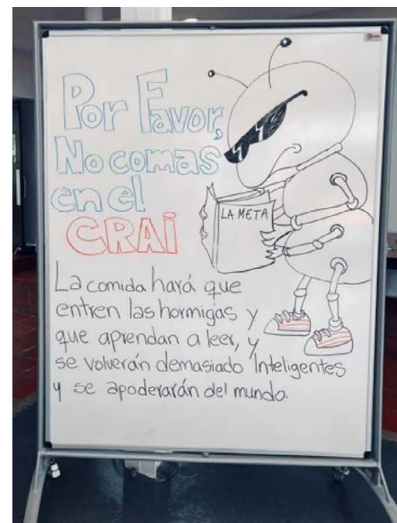 Por Favor,
No comas
en el
CRAi
LA META
La comida hará que
entren las hormigas y
que aprendan a leer, y
se volverán demasiado Inteligentes
y se apoderarán del mundo.